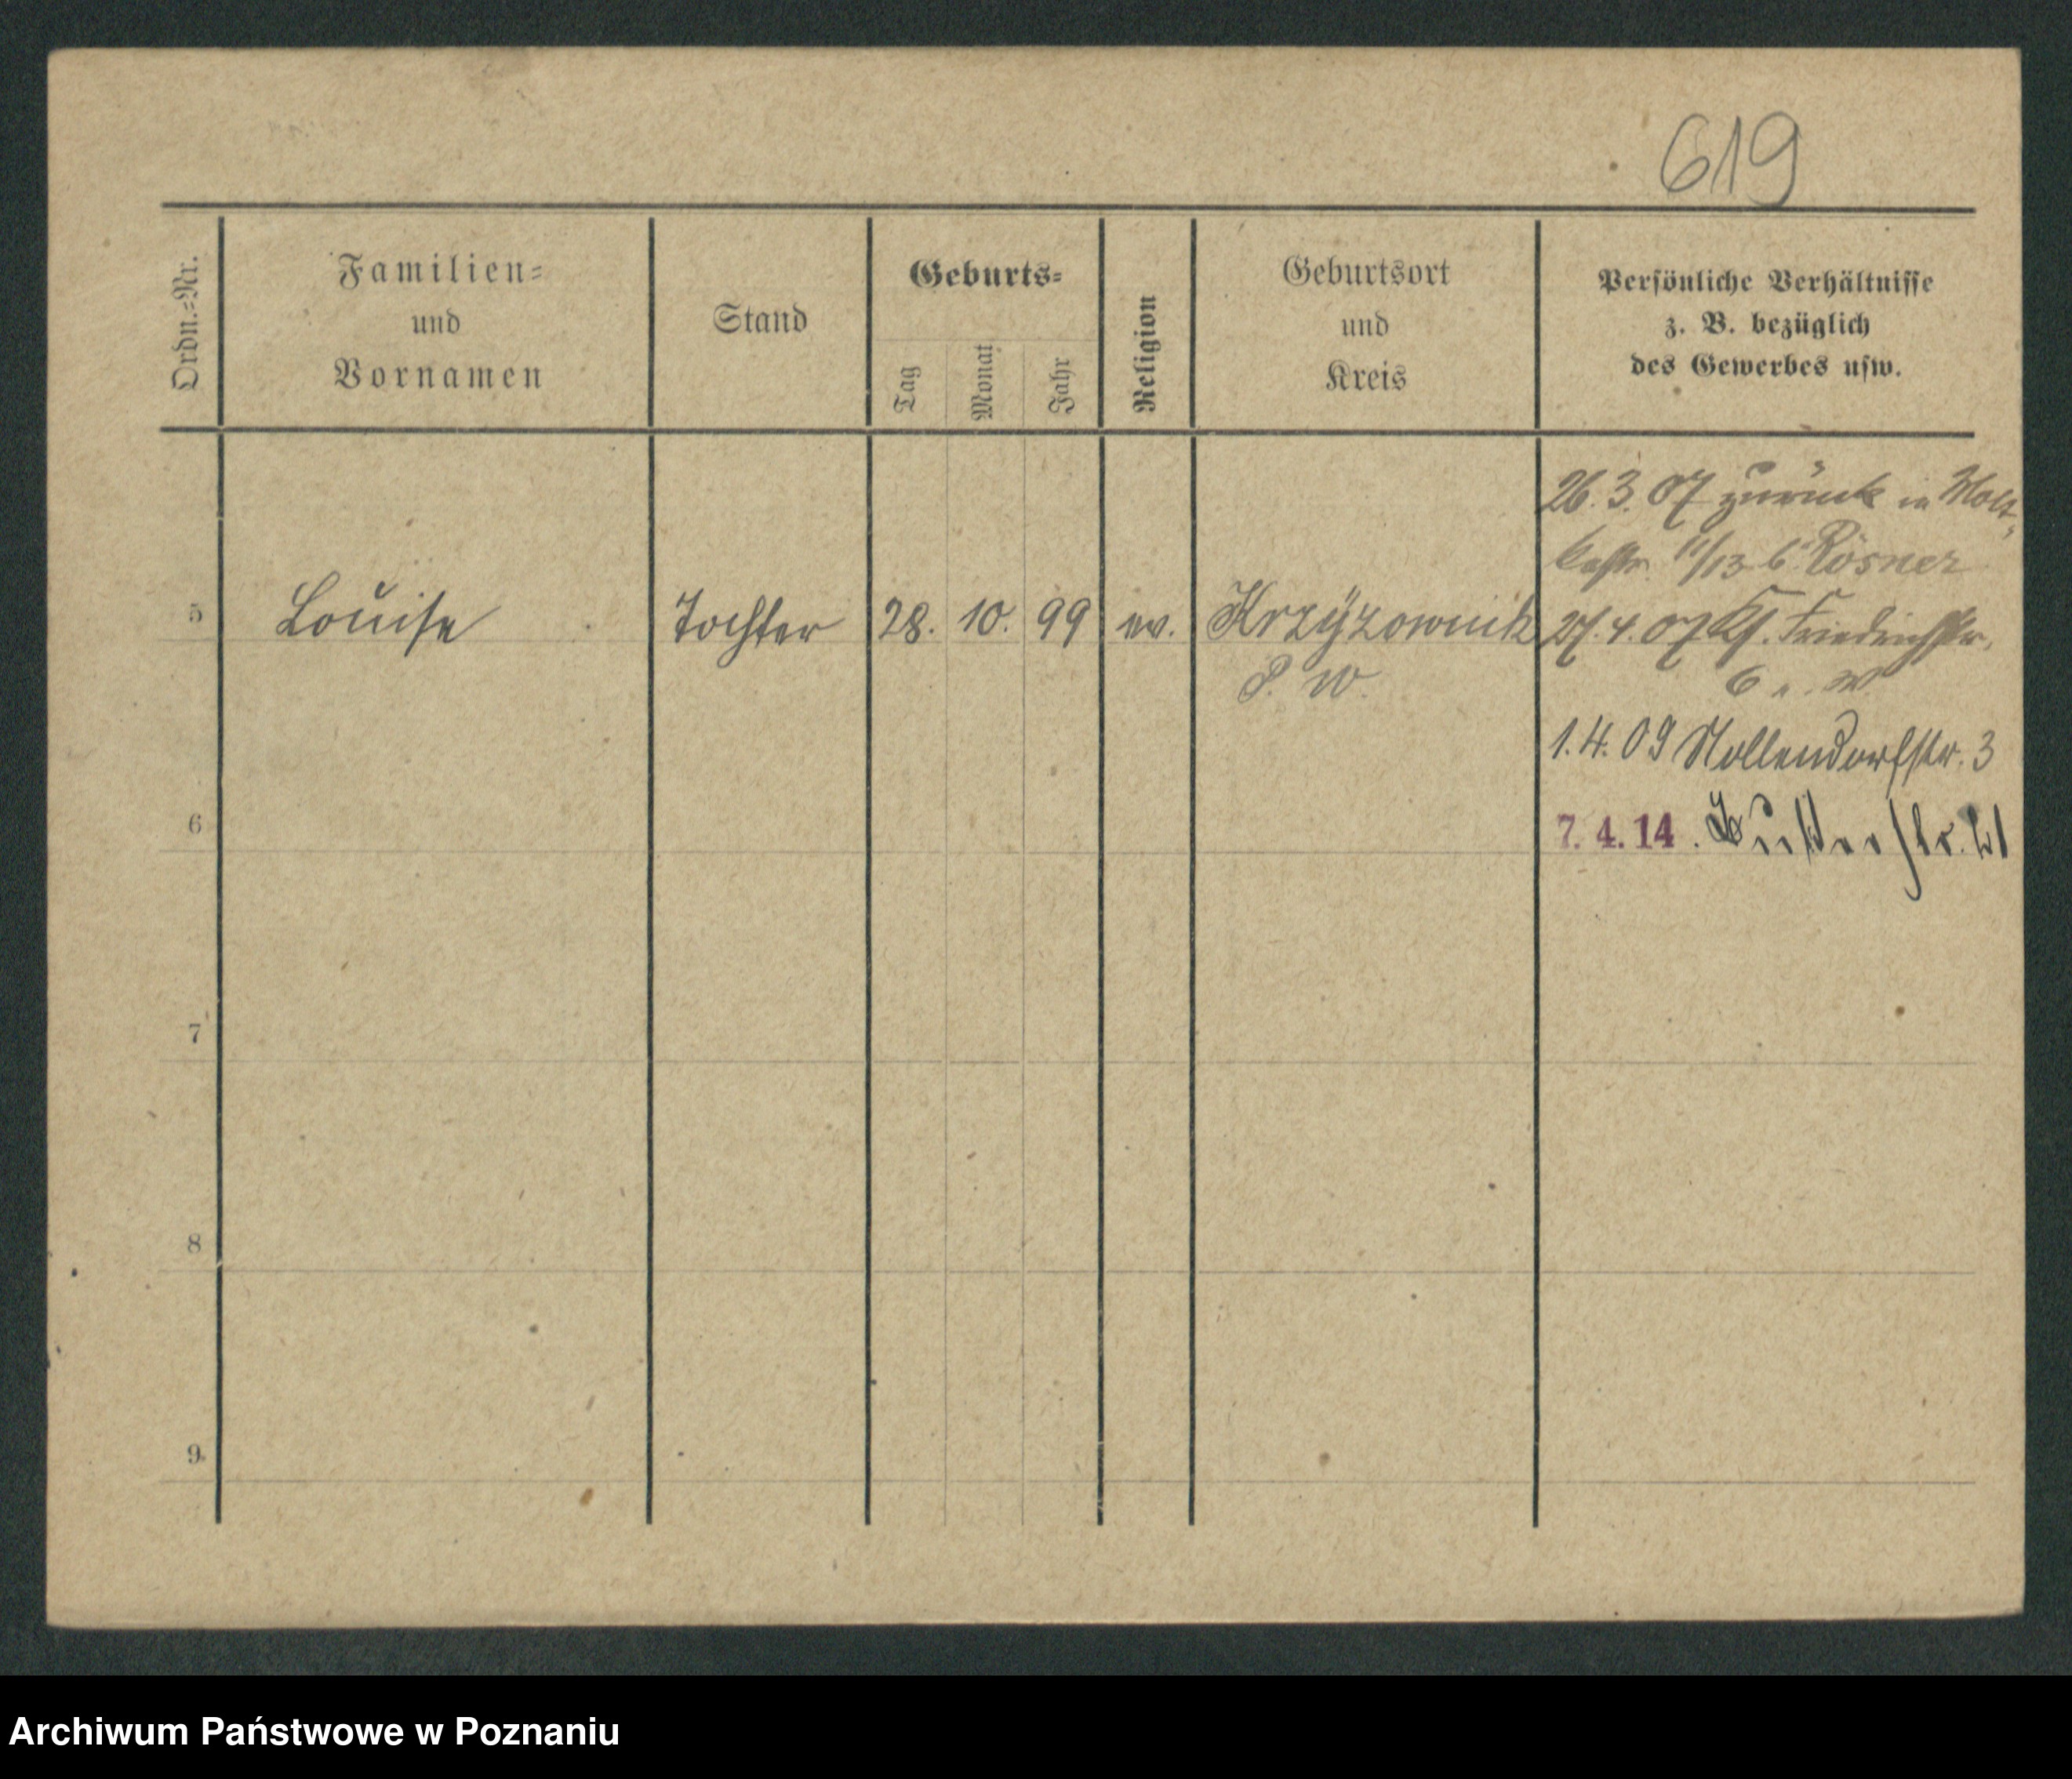 619
Ordn.=Nr.
Familien=
und
Vornamen
Stand
Geburts=
Tag
Monat
Jahr
Religion
Geburtsort
und
Kreis
Persönliche Verhältnisse
z. B. bezüglich
des Gewerbes usw.
26.3.07 zurück in Molt-
kestr. 11/13 b. Rösner
5 Louise Tochter 28. 10. 99 ev. Krzÿzownik
P. W.
27.4.07 Kf. Friedrichstr.
6
1.4.09 Nollendorfstr. 3
6
7.4.14.
7
8
9.
Archiwum Państwowe w Poznaniu